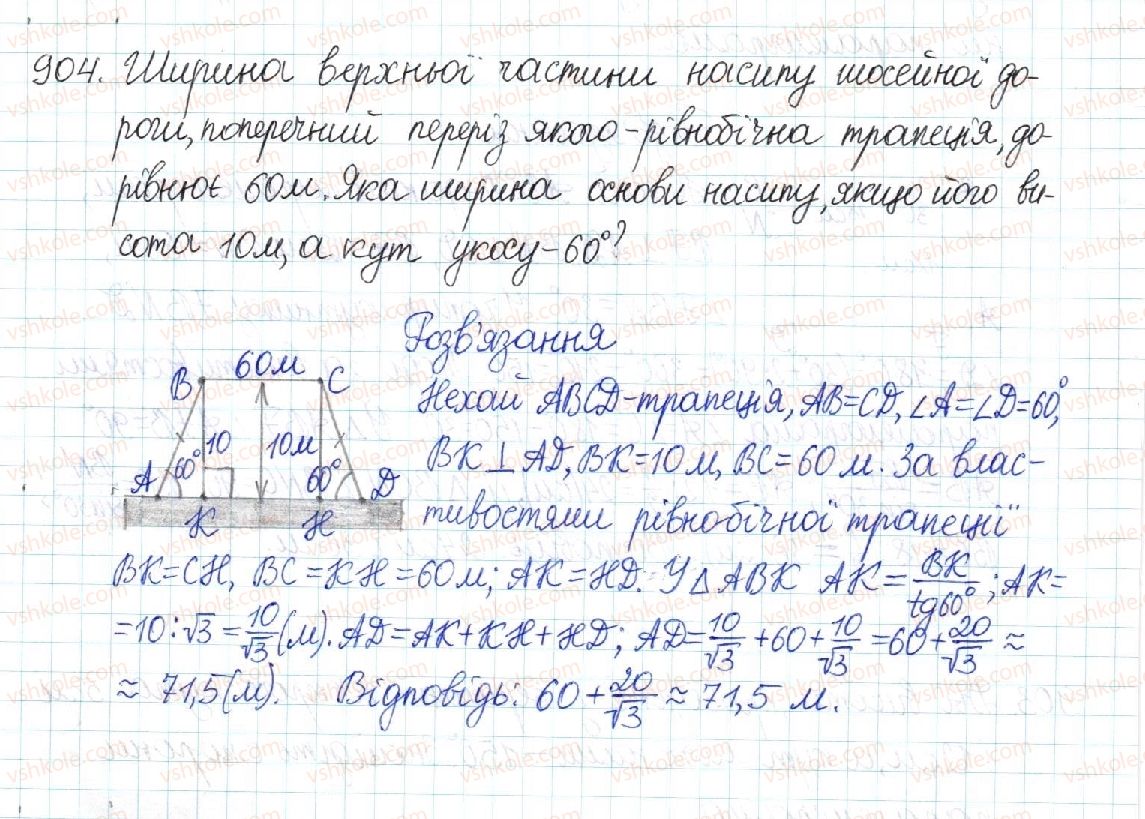 904. Ширина верхньої частини насипу шосейної до-
роги, поперечний переріз якого - рівнобічна трапеція, до-
рівнює 60м. Яка ширина основи насипу, якщо його ви-
сота 10м, а кут укосу - 60°?
Розв'язання
60м
B C
10 10м
A 60° 60° D
K H
Нехай ABCD - трапеція, AB = CD, ∠A = ∠D = 60°,
BK ⊥ AD, BK = 10 м, BC = 60 м. За влас-
тивостями рівнобічної трапеції
BK = CH, BC = KH = 60 м; AK = HD. У △ ABK AK = BK/tg60°; AK =
= 10 : √3 = 10/√3 (м). AD = AK + KH + HD; AD = 10/√3 + 60 + 10/√3 = 60 + 20/√3 ≈
≈ 71,5 (м). Відповідь: 60 + 20/√3 ≈ 71,5 м.